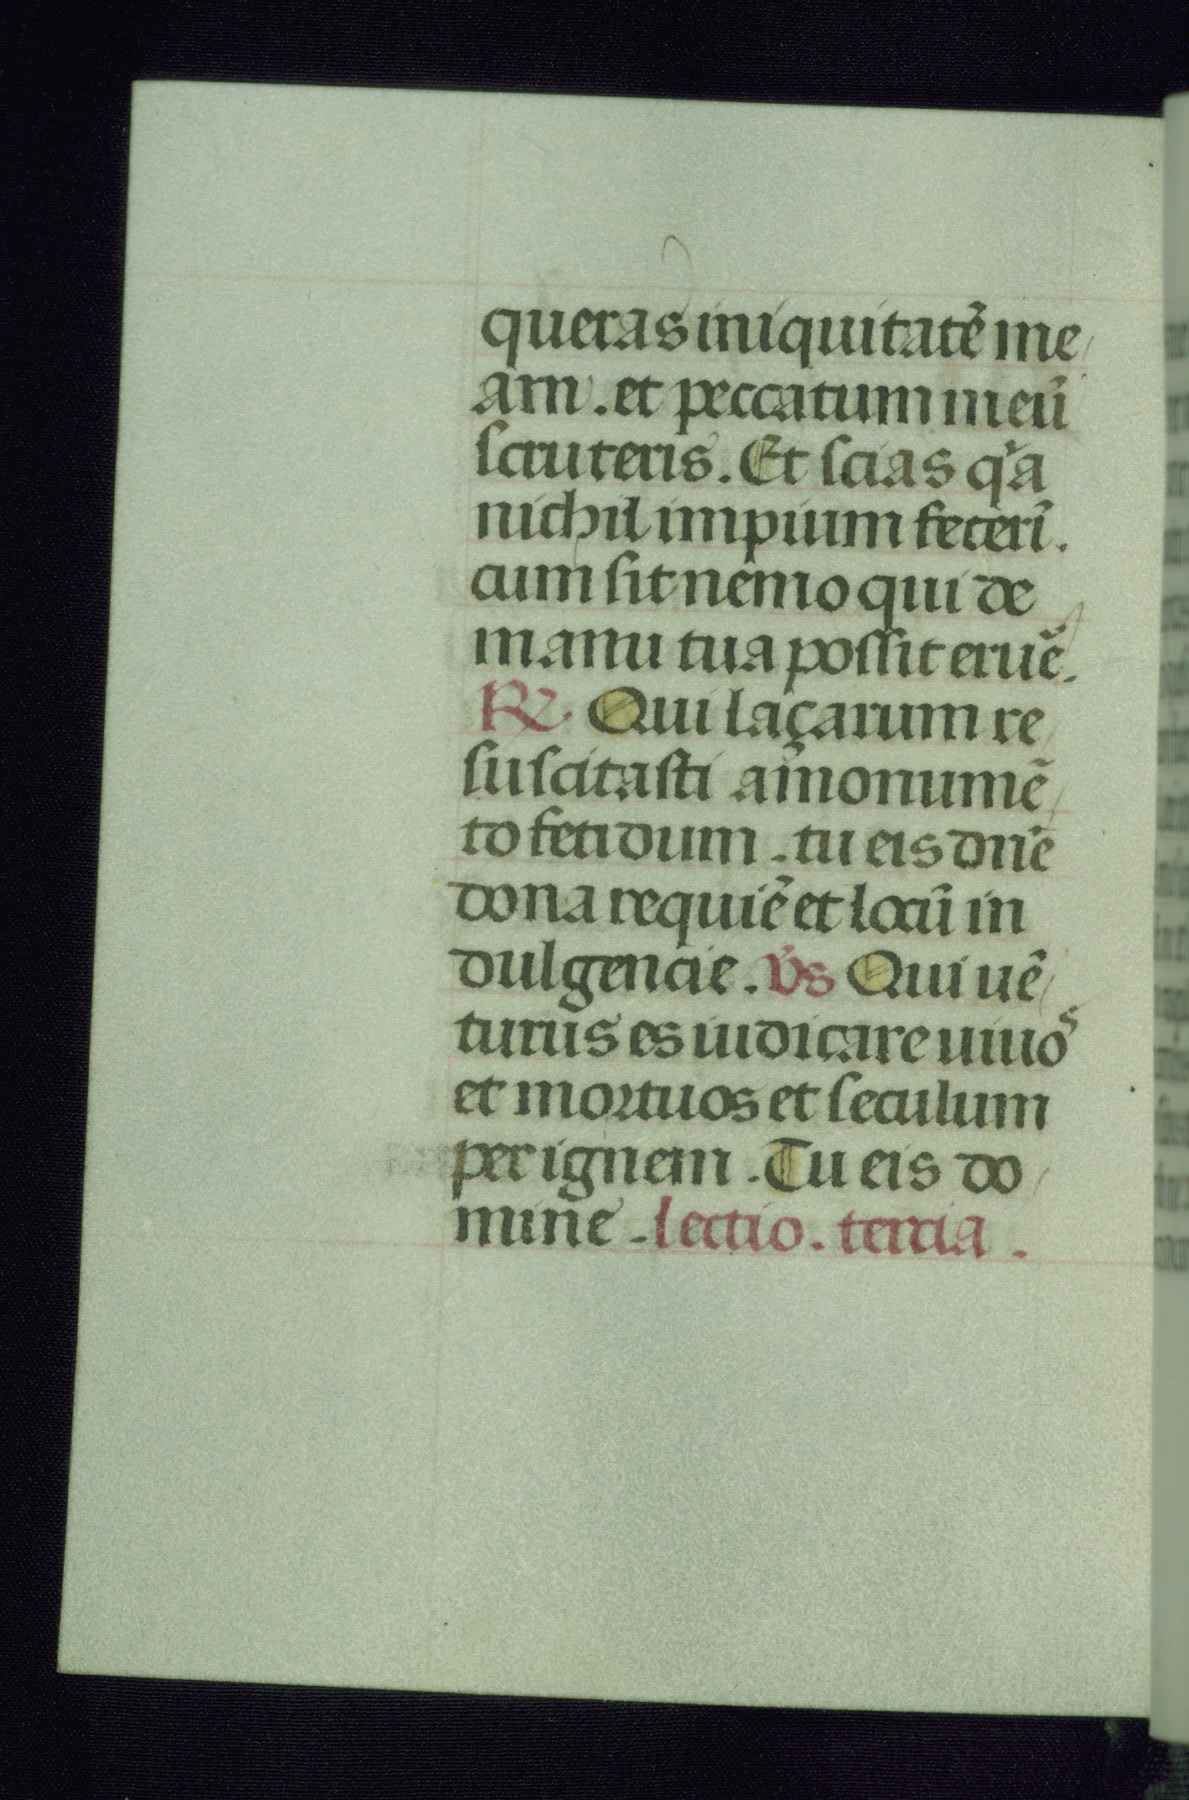 queras iniquitatẽ me/
am. et peccatum meũ
scruteris. Et scias qͥa
nichil impium fecerĩ.
cum sit nemo qui de
manu tua possit eruẽ.
℟ Qui laçarum re/
suscitasti a monumẽ/
to fetidum. tu eis dñe
dona requiẽ et locũ in
dulgencie. v̾s Qui uẽ/
turus es iudicare uiuoˢ
et mortuos et seculum
per ignem. Tu eis do/
mine. lectio. tercia.